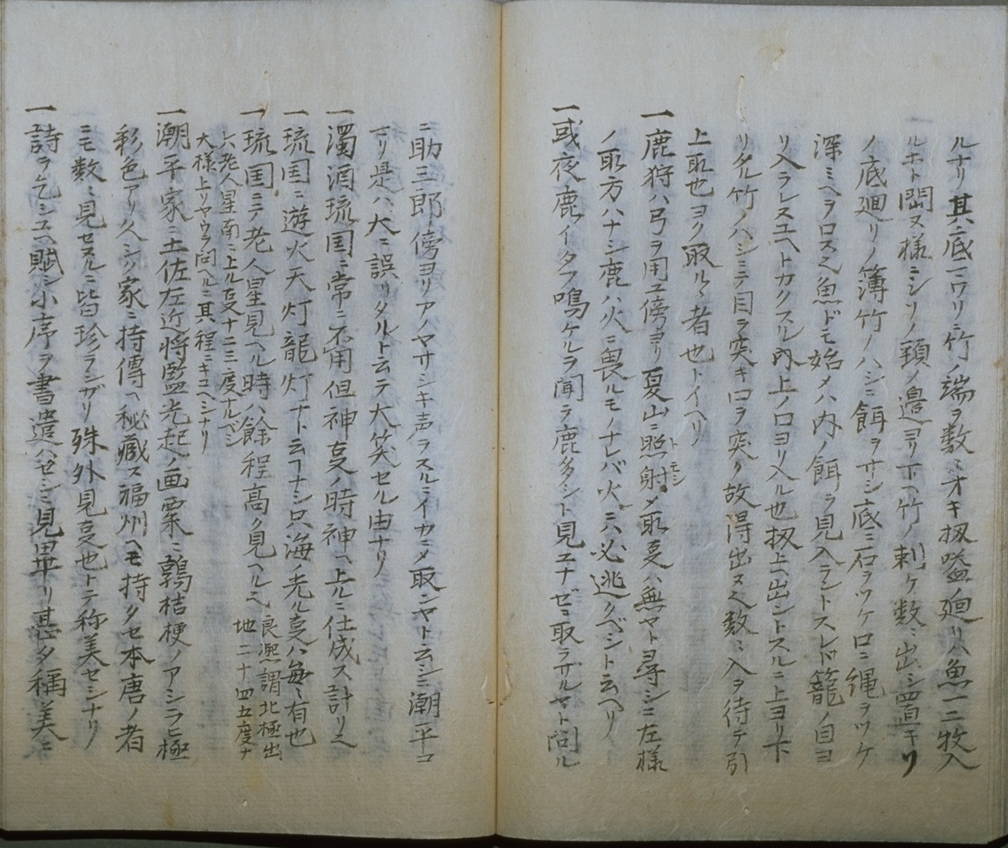 ルナリ其底ニワリシ竹ノ端ヲ数ニオキ扨盗ノ廻リハ魚一二牧入
ルホト間ス様ニシリノ頚ノ邉ヨリ下ヘ竹ノ刺ケ数ニ出シ置キリ
ノ底廻リノ簿竹ノハシニ餌ヲサシ底ニ石ヲツケロニ縄ヲツケ
深ミヘヲロス魚ドモ始メハ内ノ餌ヲ見入ラントスレド籠ノ目ヨ
リ入ラレスユヘトカクスル内上ノ口ヨリ入ル也扨上出ントスルニ上ヨリ下
リタル竹ノハシニテ目ヲ突キロヲ突ク故得出ス数ニ入ヲ待テ引
上取也ヨク取ルヽ者也トイヘリ
一鹿狩ハ弓ヲ用ユ傍ヨリ夏山ニ照射トモシメ取事ハ無ヤト尋シニ左様
ノ取方ハナシ鹿ハ火ニ畏ルモノナレバ火ニハ必逃クベシト云ヘリ
一或夜鹿ノイタフ鳴ケルヲ聞ラ鹿多シト見ユナゼニ取ラサルヤト問ル
ニ助三郎傍ヨリアノヤサシキ声ヲスルニイカニメ取ンヤト云シニ潮平コ
マリ是ハ大ニ誤リタルト云テ大笑セル由ナリ
一濁酒琉国ニ常ニ不用但神事ノ時神ヘ上ルニ仕成ス計リヘ
一琉国ニ遊火天灯龍灯ナト云ナシ只海ノ光ル事ハ毎ニ有也
一琉国ニテ老人星見ヘル時ハ餘程高ク見ヘル 良凞謂北極出地二十四五度ナ
六老人星南ニ上ル事十二三度ナルベシ
大様上リヤウヲ問ヘルニ其程ニキユヘシナリ
一潮平家ニ土佐左近将監光起ノ画栗ニ鶉桔梗ノアシラヒ極
彩色アリ久シク家ニ持傳ヘ秘藏ス福州ヘモ持クセ本唐ノ者
ニモ数ニ見セスルニ皆珍ラシガリ殊外見事也トテ称美セシナリ
一詩ヲ乞シユヘ賦シ小序ヲ書遣ハセシニ見畢リ甚タ稱美ニ